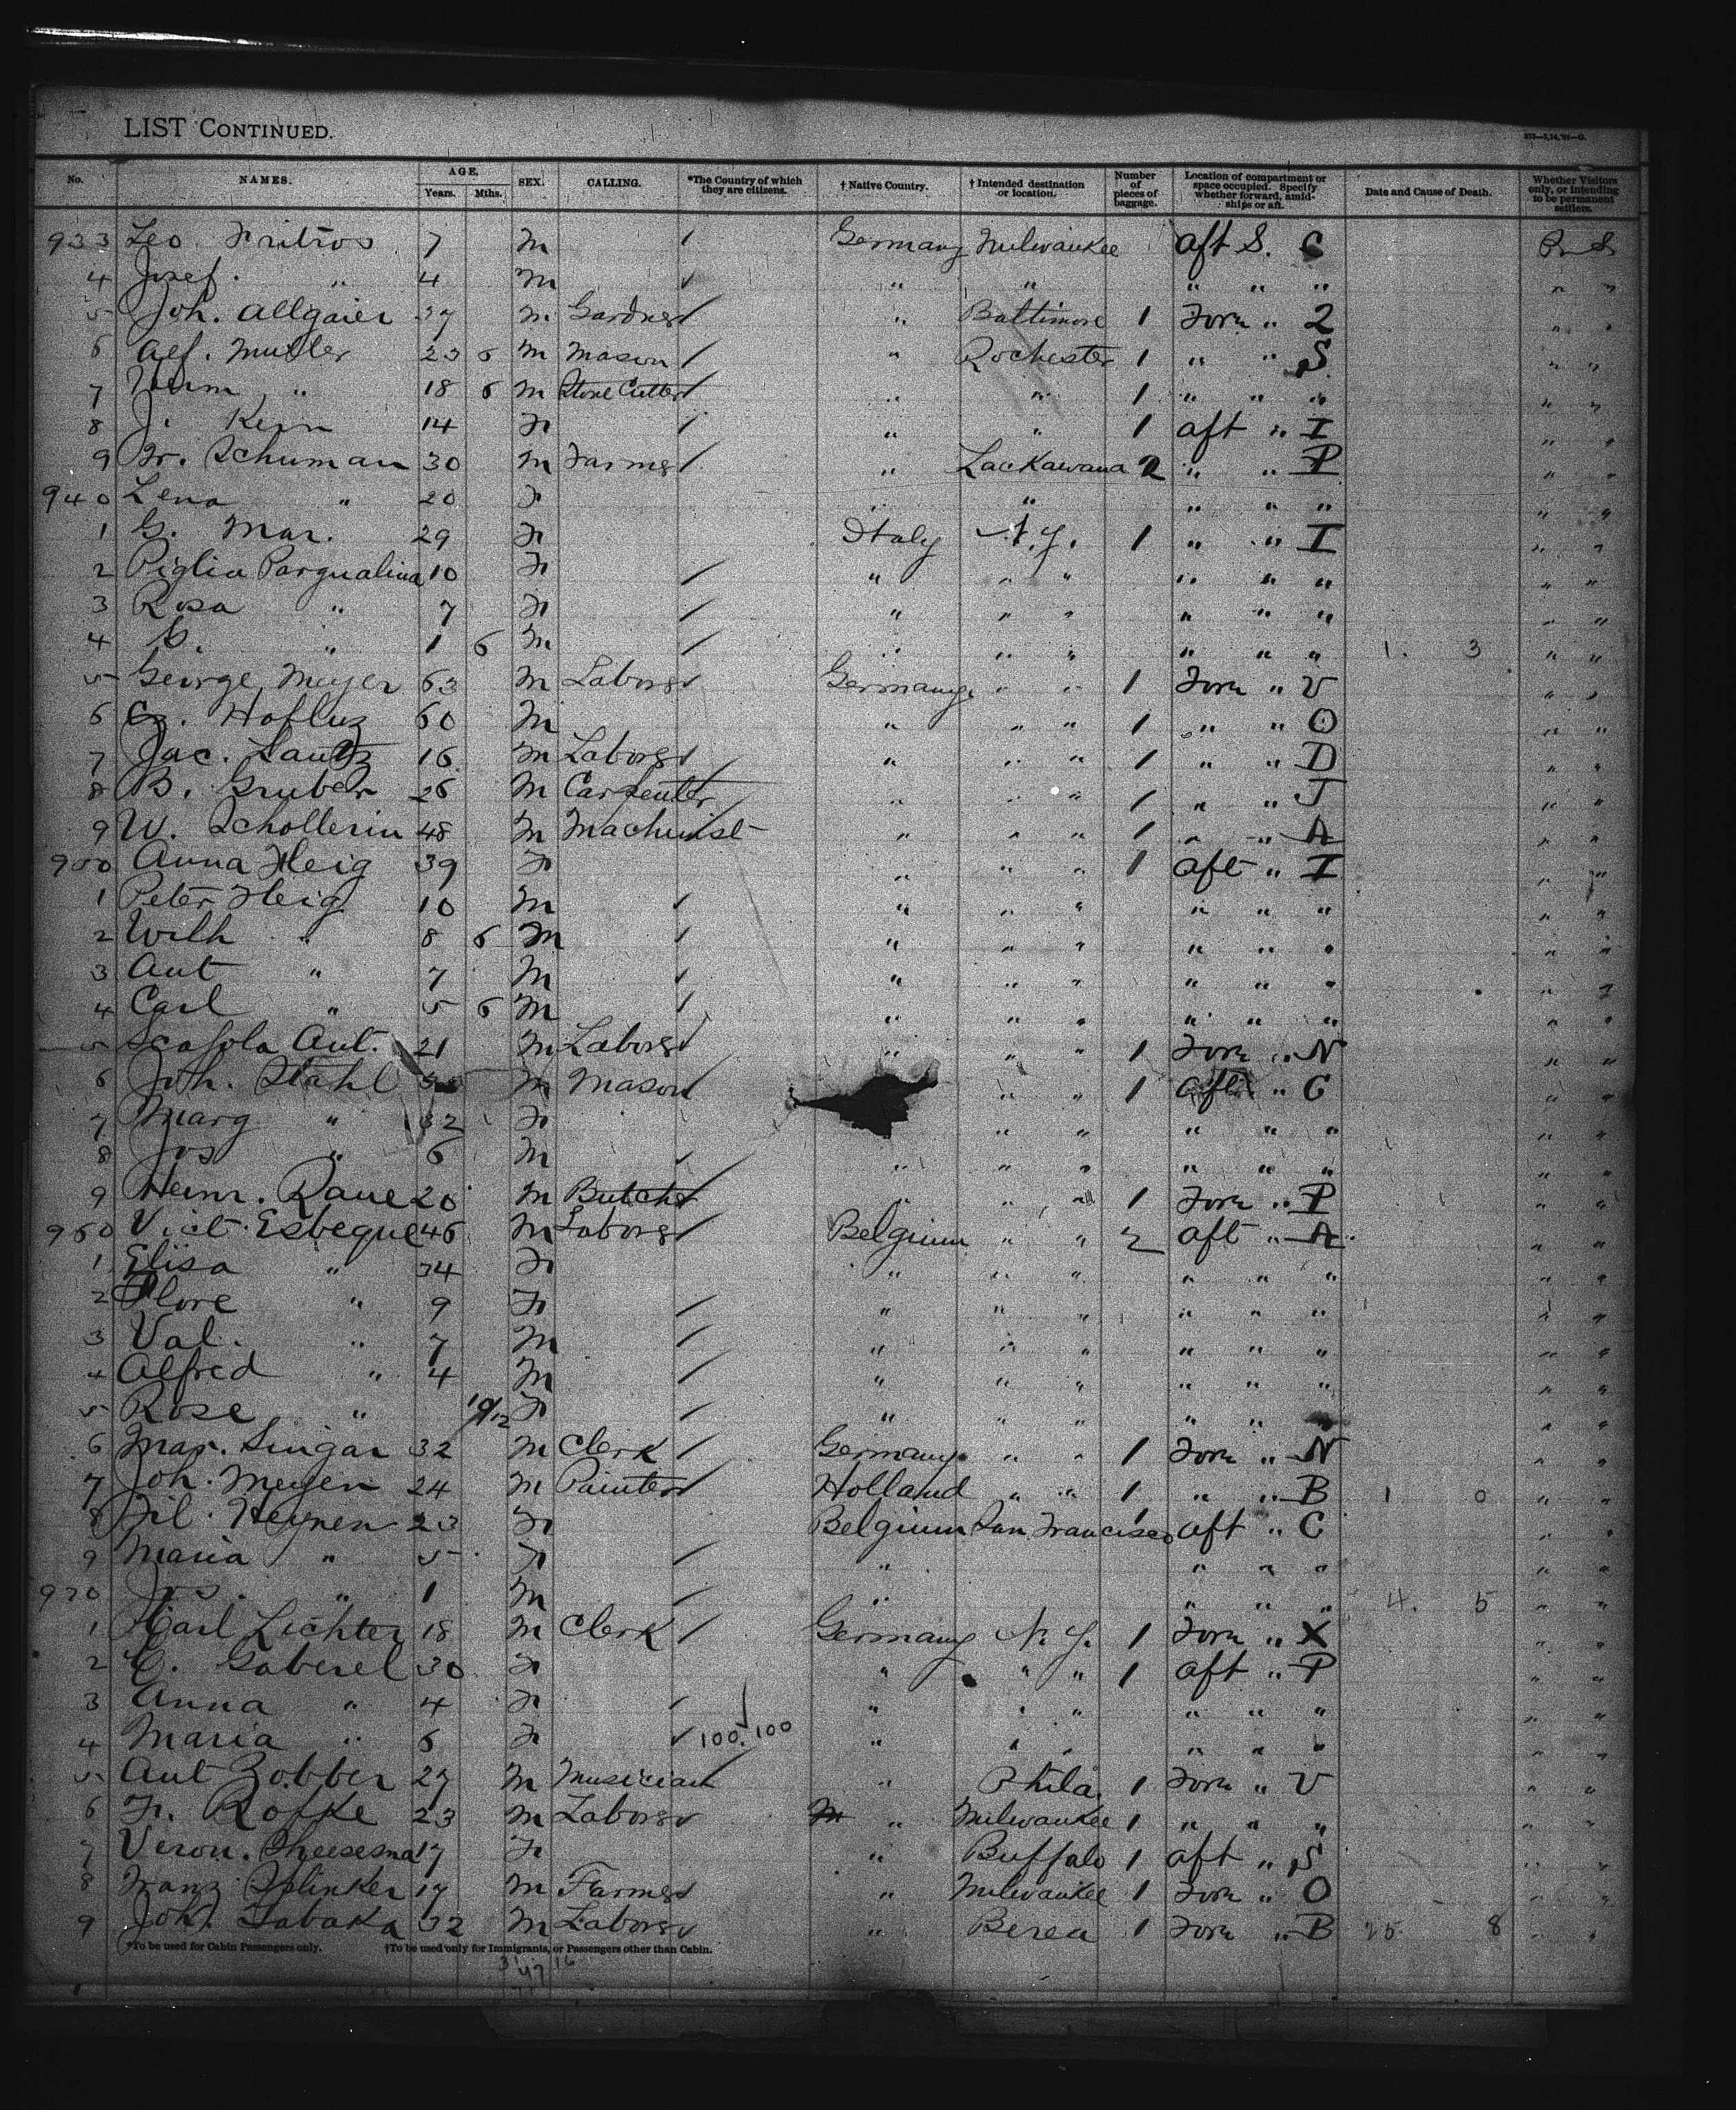 LIST CONTINUED.
No. NAMES. AGE. Years. Mths. SEX. CALLING. *The Country of which they are citizens. † Native Country. † Intended destination or location. Number of pieces of baggage. Location of compartment or space occupied. Specify whether forward, amidships or aft. Date and Cause of Death. Whether Visitors only, or intending to be permanent settlers.
933 Leo 7 M Germany Milwaukee Aft S. C
4 Josef " 4 M " " " " " " "
5 Joh. Allgaier 37 M Gardner " Baltimore 1 Forw " 2 " "
6 Alf. Muller 23 6 M Mason " Rochester 1 " " S " "
7 " 18 6 M Stone Cutter " " 1 " " " " "
8 J. Kern 14 F " " 1 aft " I " "
9 Fr. Schuman 30 M Farmer " Lackawana 2 " " P " "
940 Lena " 20 F " " " " " " "
1 G. Mar. 29 F Italy N.Y. 1 " " I " "
2 Piglia Pasqualina 10 F " " " " " " " "
3 Rosa " 7 F " " " " " " " "
4 " 1 6 M " " " " " " 1. 3 " "
5 George Meyer 63 M Labors Germany " " 1 Forw " V " "
6 60 M " " " 1 " " O " "
7 Jac. Lautz 16 M Labors " " " 1 " " D " "
8 B. Gruber 26 M Carpenter " " " 1 " " J " "
9 W. Schollerin 48 M Machinist " " " 1 " " A " "
950 Anna Heig 39 F " " " 1 aft " I " "
1 Peter Heig 10 M " " " " " " " "
2 Wilh " 8 6 M " " " " " " " "
3 Ant " 7 M " " " " " " " "
4 Carl " 5 6 M " " " " " " " "
5 Ant. 21 M Labors " " " 1 Forw " N " "
6 Joh. Stahl M Mason " " 1 aft " C " "
7 Marg " 32 F " " " " " " "
8 Jos " 6 M " " " " " " " "
9 Heinr. Raue 26 M Butcher " " " 1 Forw " P " "
960 Vict. Esbeque 46 M Labors Belgium " " 2 aft " A " "
1 Elisa " 34 F " " " " " " " "
2 Flore " 9 F " " " " " " " "
3 Val. " 7 M " " " " " " " "
4 Alfred " 4 M " " " " " " " "
5 Rose " 10/12 F " " " " " " "
6 Max. Singar 32 M Clerk Germany " " 1 Forw " N " "
7 Joh. Meyen 24 M Painter Holland " " 1 " " B 1 0 " "
8 Fil. Heynen 23 F Belgium San Francisco aft " C " "
9 Maria " 5 F " " " " " "
970 Jos. " 1 M " " " " 4. 5 " "
1 Karl Lichter 18 M Clerk Germany N.Y. 1 Forw " X " "
2 C. Gaberel 30 F " " " 1 aft " P " "
3 Anna " 4 F " " " " " " " "
4 Maria " 6 F 100. 100 " " " " " " " "
5 Ant Zobber 27 M Musician " Phila. 1 Forw " V " "
6 Fr. Rofke 23 M Labors " Milwaukee 1 " " " " "
7 Veron. 17 F " Buffalo 1 aft " S " "
8 Franz Splinker 17 M Farmer " Milwaukee 1 Forw " O " "
9 Joh. Sabaka 32 M Labors " Berea 1 Forw " B 25 8 " "
*To be used for Cabin Passengers only. †To be used only for Immigrants, or Passengers other than Cabin.
47 16